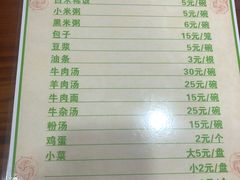 白米稀饭 5元/碗
小米粥 5元/碗
黑米粥 6元/碗
包子 15元/笼
豆浆 5元/碗
油条 3元/根
牛肉汤 30元/碗
羊肉汤 25元/碗
牛肉面 15元/碗
牛杂汤 25元/碗
粉汤 15元/碗
鸡蛋 2元/个
小菜 大5元/盘
小2元/盘